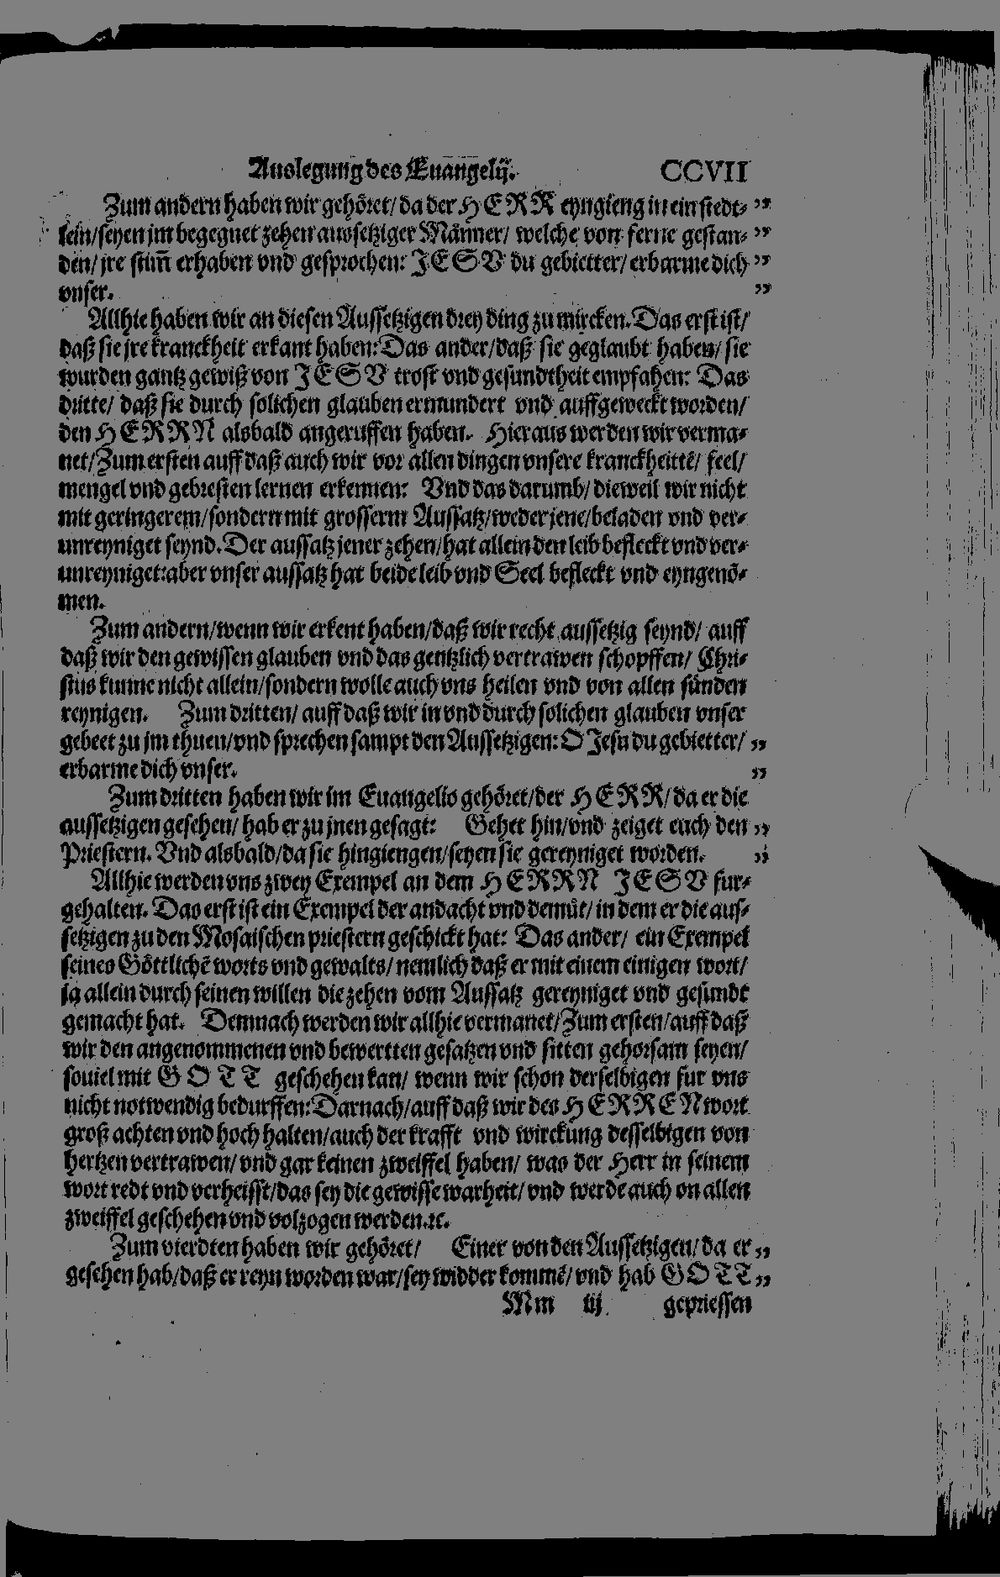 Auslegung des Euangelij. CCVII
Zum andern haben wir gehöret/ da der HERR eyngieng in ein stedt- ”
lein/seyen jm begegnet zehen aussetziger Männer/ welche von ferne gestan- ”
den/ jre stim̄ erhaben vnd gesprochen: JESV du gebietter/ erbarme dich ”
vnser. ”
Allhie haben wir an diesen Aussetzigen drey ding zu mircken. Das erst ist/
daß sie jre kranckheit erkant haben: Das ander/ daß sie geglaubt haben/ sie
wurden gantz gewiß von JESV trost vnd gesundtheit empfahen: Das
dritte/ daß sie durch solichen glauben ermundert vnd auffgeweckt worden/
den HERRN alsbald angeruffen haben. Hieraus werden wir verma-
net/ Zum ersten auff daß auch wir vor allen dingen vnsere kranckheittē/ feel/
mengel vnd gebresten lernen erkennen: Vnd das darumb/ dieweil wir nicht
mit geringerem/sondern mit grosserm Aussatz/weder jene/beladen vnd ver-
unreyniget seynd. Der aussatz jener zehen/hat allein den leib befleckt vnd ver-
unreyniget:aber vnser aussatz hat beide leib vnd Seel befleckt vnd eyngenō-
men.
Zum andern/wenn wir erkent haben/daß wir recht aussetzig seynd/ auff
daß wir den gewissen glauben vnd das gentzlich vertrawen schopffen/ Chri-
stus kunne nicht allein/sondern wolle auch vns heilen vnd von allen sünden
reynigen. Zum dritten/ auff daß wir in vnd durch solichen glauben vnser
gebeet zu jm thuen/vnd sprechen sampt den Aussetzigen: O Jesu du gebietter/ ”
erbarme dich vnser. ”
Zum dritten haben wir im Euangelio gehöret/der HERR/ da er die
aussetzigen gesehen/ hab er zu jnen gesagt: Gehet hin/vnd zeiget euch den ”
Priestern. Vnd alsbald/da sie hingiengen/seyen sie gereyniget worden. ”
Allhie werden vns zwey Exempel an dem HERRN JESV fur-
gehalten. Das erst ist ein Exempel der andacht vnd demüt/ in dem er die aus-
setzigen zu den Mosaischen priestern geschickt hat: Das ander/ ein Exempel
seines Göttlichē worts vnd gewalts/ nemlich daß er mit einem einigen wort/
ja allein durch seinen willen die zehen vom Aussatz gereyniget vnd gesundt
gemacht hat. Demnach werden wir allhie vermanet/ Zum ersten/auff daß
wir den angenommenen vnd bewertten gesatzen vnd sitten gehorsam seyen/
souiel mit GOTT geschehen kan/ wenn wir schon derselbigen fur vns
nicht notwendig bedurffen: Darnach/auff daß wir des HERREN wort
groß achten vnd hoch halten/auch der krafft vnd wirckung desselbigen von
hertzen vertrawen/ vnd gar keinen zweiffel haben/ was der Herr in seinem
wort redt vnd verheisst/das sey die gewisse warheit/ vnd werde auch on allen
zweiffel geschehen vnd volzogen werden.ꝛc.
Zum vierdten haben wir gehöret/ Einer von den Aussetzigen/ da er ”
gesehen hab/daß er reyn worden war/sey widder kommē/ vnd hab GOTT ”
Mm iij gepriessen